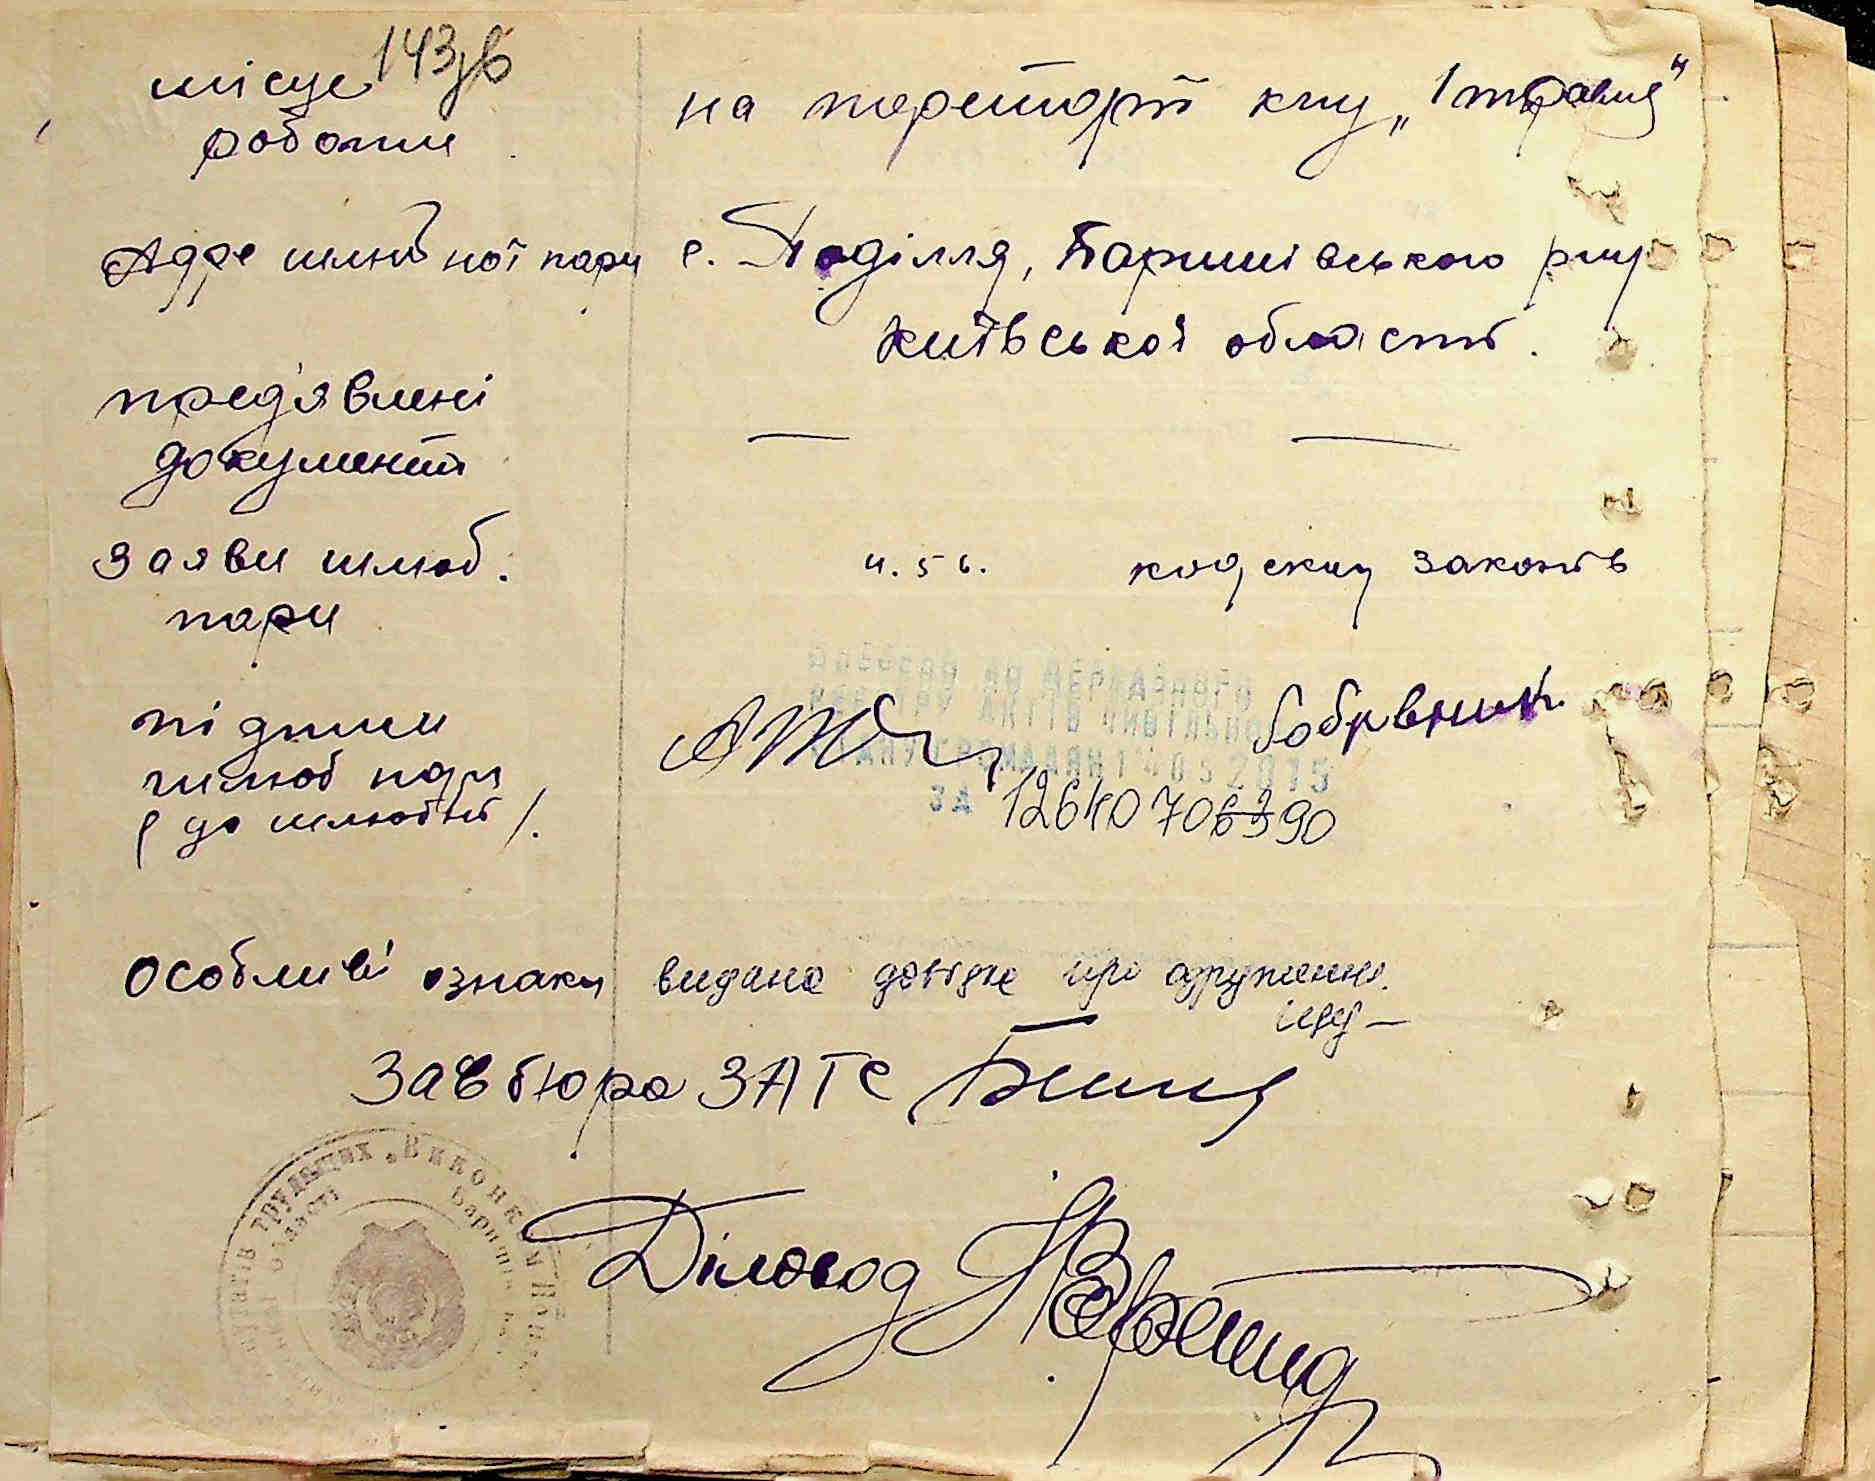 143зв
місце
роботи
на території клгу „1 травня"
Адре шлюбної пари с. Поділля, Баришівського р-ну
Київської области.
пред'явлені
документи
— —
заяви шлюб.
пари
кодексу законів
підписи
шлюб пари
(до шлюбні).
Бобрівник
ВНЕСЕНО ДО ДЕРЖАВНОГО
РЕЄСТРУ АКТІВ ЦИВІЛЬНОГО
СТАНУ ГРОМАДЯН 14 05 2015
ЗА
особливі ознаки видана довідка про одруження.
Зав бюро ЗАГС
Діловод
депутатів трудящих Виконком
області Баришів